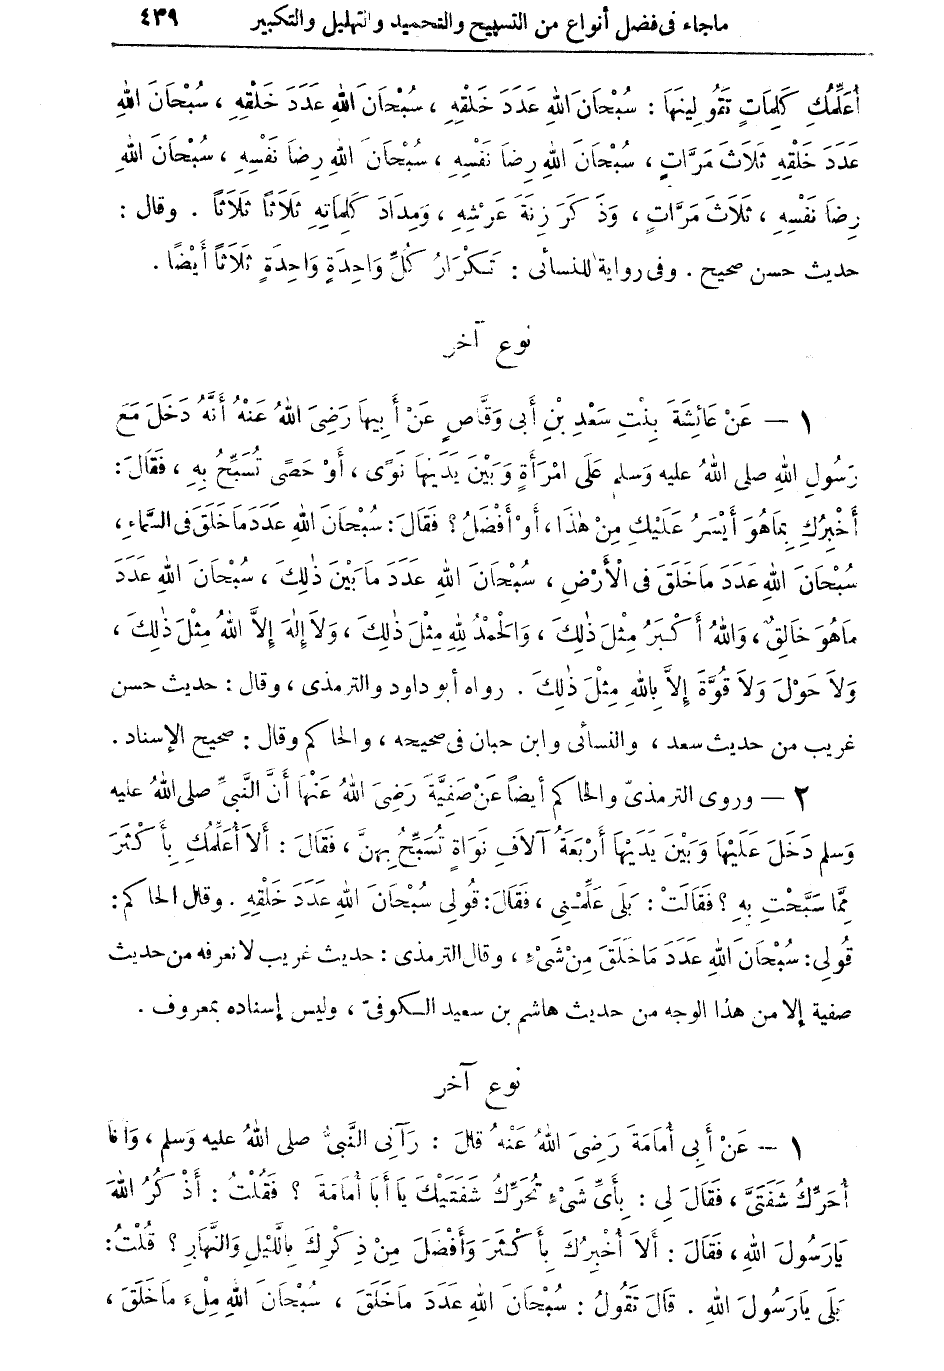 ماجاء فى فضل أنواع من التسبيح والتحميد والتهليل والتكبير ٤٣٩
أُعَلِّمُكِ كَلِمَاتٍ تَقُولِينَهَا : سُبْحَانَ اللهِ عَدَدَ خَلْقِهِ ، سُبْحَانَ اللهِ عَدَدَ خَلْقِهِ ، سُبْحَانَ اللهِ
عَدَدَ خَلْقِهِ ثَلَاثَ مَرَّاتٍ ، سُبْحَانَ اللهِ رِضَا نَفْسِهِ ، سُبْحَانَ اللهِ رِضَا نَفْسِهِ ، سُبْحَانَ اللهِ
رِضَا نَفْسِهِ ، ثَلَاثَ مَرَّاتٍ ، وَذَكَرَ زِنَةَ عَرْشِهِ ، وَمِدَادَ كَلِمَاتِهِ ثَلَاثًا ثَلَاثًا . وقال :
حديث حسن صحيح . وفى رواية للنسائى : تَكْرَارُ كُلِّ وَاحِدَةٍ وَاحِدَةٍ ثَلَاثًا أَيْضًا .
نوع آخر
١ — عَنْ عَائِشَةَ بِنْتِ سَعْدِ بْنِ أَبِى وَقَّاصٍ عَنْ أَبِيهَا رَضِىَ اللهُ عَنْهُ أَنَّهُ دَخَلَ مَعَ
رَسُولِ اللهِ صلى اللهُ عليه وَسلم عَلَى امْرَأَةٍ وَبَيْنَ يَدَيْهَا نَوًى ، أَوْ حَصًى تُسَبِّحُ بِهِ ، فَقَالَ :
أُخْبِرُكِ بِمَا هُوَ أَيْسَرُ عَلَيْكِ مِنْ هٰذَا ، أَوْ أَفْضَلُ ؟ فَقَالَ : سُبْحَانَ اللهِ عَدَدَ مَا خَلَقَ فى السَّمَاءِ ،
سُبْحَانَ اللهِ عَدَدَ مَا خَلَقَ فى الْأَرْضِ ، سُبْحَانَ اللهِ عَدَدَ مَا بَيْنَ ذٰلِكَ ، سُبْحَانَ اللهِ عَدَدَ
مَاهُوَ خَالِقٌ ، وَاللهُ أَكْبَرُ مِثْلَ ذٰلِكَ ، وَالْحَمْدُ لِلهِ مِثْلَ ذٰلِكَ ، وَلَا إِلٰهَ إِلَّا اللهُ مِثْلَ ذٰلِكَ ،
وَلَا حَوْلَ وَلَا قُوَّةَ إِلَّا بِاللهِ مِثْلَ ذٰلِكَ . رواه أبو داود والترمذى ، وقال : حديث حسن
غريب من حديث سعد ، والنسائى وابن حبان فى صحيحه ، والحاكم وقال : صحيح الإسناد .
٢ — وروى الترمذىّ والحاكم أيضاً عَنْ صَفِيَّةَ رَضِىَ اللهُ عَنْهَا أَنَّ النَّبِىَّ صلى اللهُ عليه
وَسلم دَخَلَ عَلَيْهَا وَبَيْنَ يَدَيْهَا أَرْبَعَةُ آلَافِ نَوَاةٍ تُسَبِّحُ بِهِنَّ ، فَقَالَ : أَلَا أُعَلِّمُكِ بِأَكْثَرَ
مِمَّا سَبَّحْتِ بِهِ ؟ فَقَالَتْ : بَلَى عَلِّمْنِى ، فَقَالَ : قُولِى سُبْحَانَ اللهِ عَدَدَ خَلْقِهِ . وقال الحاكم :
قُولِى : سُبْحَانَ اللهِ عَدَدَ مَاخَلَقَ مِنْ شَىْءٍ ، وقال الترمذى : حديث غريب لانعرفه من حديث
صفية إلا من هذا الوجه من حديث هاشم بن سعيد الكوفىّ ، وليس إسناده بمعروف .
نوع آخر
١ — عَنْ أَبِى أُمَامَةَ رَضِىَ اللهُ عَنْهُ قَالَ : رَآنِى النَّبِىُّ صلى اللهُ عليه وَسلم ، وَأَنَا
أُحَرِّكُ شَفَتَىَّ ، فَقَالَ لِى : بِأَىِّ شَىْءٍ تُحَرِّكُ شَفَتَيْكَ يَا أَبَا أُمَامَةَ ؟ فَقُلْتُ : أَذْكُرُ اللهَ
يَارَسُولَ اللهِ ، فَقَالَ : أَلَا أُخْبِرُكَ بِأَكْثَرَ وَأَفْضَلَ مِنْ ذِكْرِكَ بِاللَّيْلِ وَالنَّهَارِ ؟ قُلْتُ :
بَلَى يَارَسُولَ اللهِ . قَالَ تَقُولُ : سُبْحَانَ اللهِ عَدَدَ مَاخَلَقَ ، سُبْحَانَ اللهِ مِلْءَ مَاخَلَقَ ،